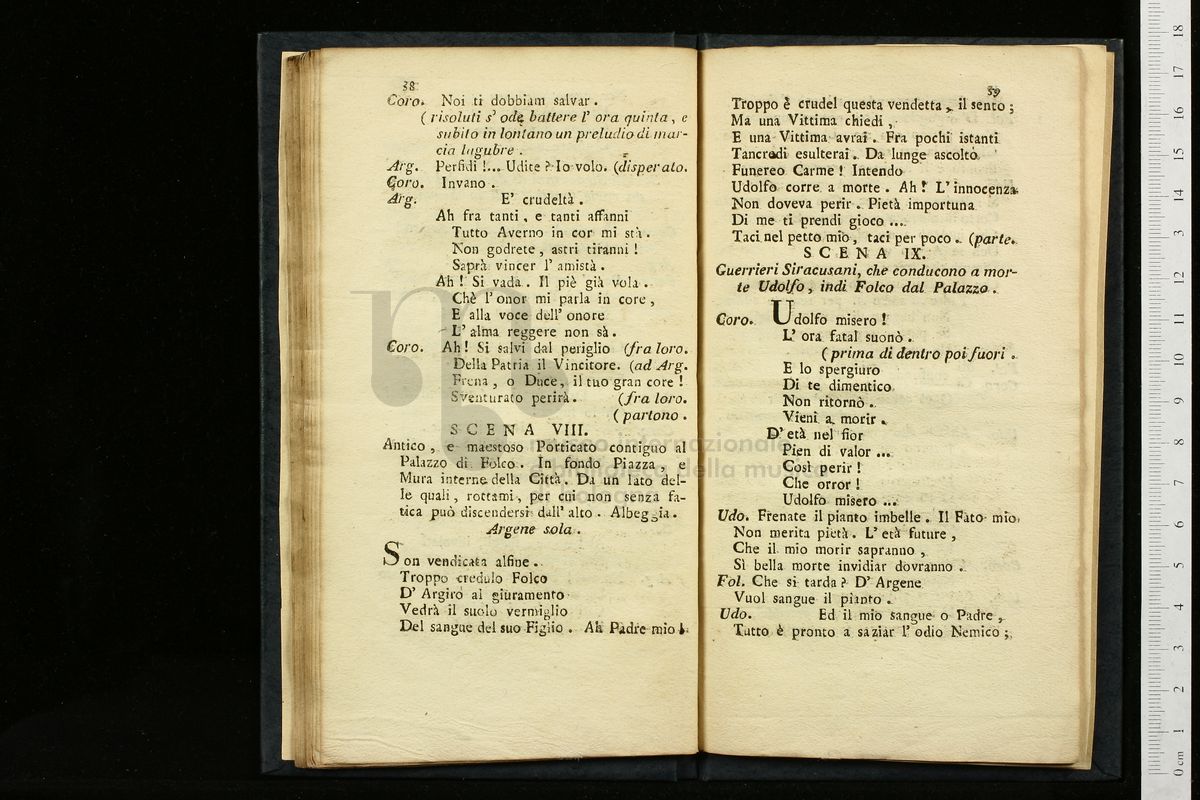 38
Coro. Noi ti dobbiam salvar.
( risoluti s' ode battere l' ora quinta, e
subito in lontano un preludio di mar-
cia lugubre.
Arg. Perfidi!... Udite? Io volo. (disperato.
Coro. Invano.
Arg. E' crudeltà.
Ah fra tanti, e tanti affanni
Tutto Averno in cor mi stà.
Non godrete, astri tiranni!
Saprà vincer l' amistà.
Ah! Si vada. Il piè già vola.
Chè l' onor mi parla in core,
E alla voce dell' onore
L' alma reggere non sà.
Coro. Ah! Si salvi dal periglio (fra loro.
Della Patria il Vincitore. (ad Arg.
Frena, o Duce, il tuo gran core!
Sventurato perirà. (fra loro.
( partono.
SCENA VIII.
Antico, e maestoso Porticato contiguo al
Palazzo di Folco. In fondo Piazza, e
Mura interne della Città. Da un lato del-
le quali, rottami, per cui non senza fa-
tica può discendersi dall' alto. Albeggia.
Argene sola.
Son vendicata alfine.
Troppo credulo Folco
D' Argiro al giuramento
Vedrà il suolo vermiglio
Del sangue del suo Figlio. Ah Padre mio!
39
Troppo è crudel questa vendetta, il sento;
Ma una Vittima chiedi,
E una Vittima avrai. Fra pochi istanti
Tancredi esulterai. Da lunge ascolto
Funereo Carme! Intendo
Udolfo corre a morte. Ah! L' innocenza
Non doveva perir. Pietà importuna
Di me ti prendi gioco ...
Taci nel petto mio, taci per poco. (parte.
SCENA IX.
Guerrieri Siracusani, che conducono a mor-
te Udolfo, indi Folco dal Palazzo.
Coro. Udolfo misero!
L' ora fatal suonò.
( prima di dentro poi fuori.
E lo spergiuro
Di te dimentico
Non ritornò.
Vieni a morir.
D' età nel fior
Pien di valor ...
Così perir!
Che orror!
Udolfo misero ...
Udo. Frenate il pianto imbelle. Il Fato mio
Non merita pietà. L' età future,
Che il mio morir sapranno,
Sì bella morte invidiar dovranno.
Fol. Che si tarda? D' Argene
Vuol sangue il pianto.
Udo. Ed il mio sangue o Padre,
Tutto è pronto a saziar l' odio Nemico;
museo internazionale
e biblioteca della musica
0 cm 1 2 3 4 5 6 7 8 9 10 11 12 13 14 15 16 17 18